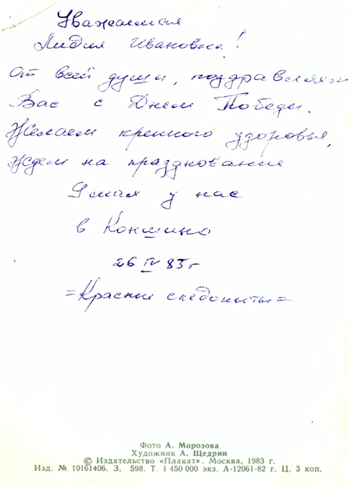 Уважаемая
Лидия Ивановна!
От всей души, поздравляем
Вас с Днем Победы.
Желаем крепкого здоровья,
Ждем на празднование
9 мая у нас
в Коншино
26 IV 83 г
=Красные следопыты=
Фото А. Морозова
Художник А. Щедрин
© Издательство «Плакат». Москва, 1983 г.
Изд. № 10161406. З. 598. Т. 1 450 000 экз. А-12061-82 г. Ц. 3 коп.